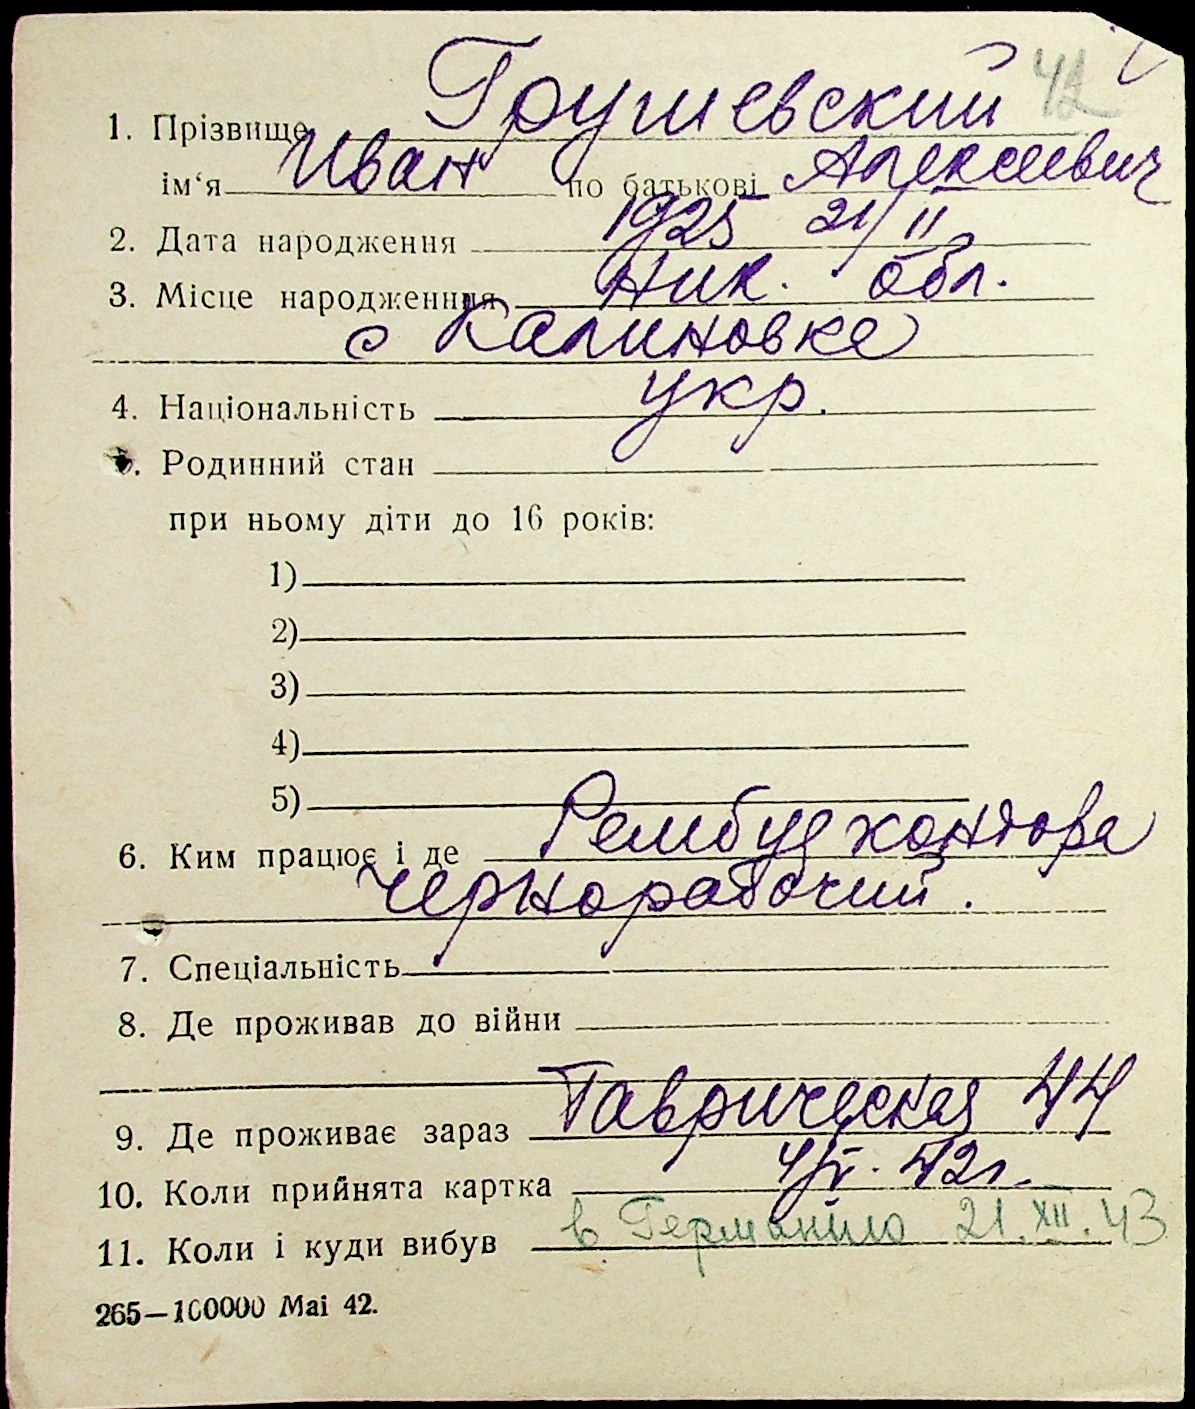 42
1. Прізвище Грушевский
ім‘я Иван по батькові Алексеевич
2. Дата народження 1925 21/II
3. Місце народженння Ник. обл.
с Калиновка
4. Національність укр.
5. Родинний стан
при ньому діти до 16 років:
1)
2)
3)
4)
5)
6. Ким працює і де Рембуд контора
Чернорабочий.
7. Спеціальність
8. Де проживав до війни
9. Де проживає зараз Таврическая 44
10. Коли прийнята картка 42г.
11. Коли і куди вибув в Германию 21.XII.43
265—100000 Mai 42.